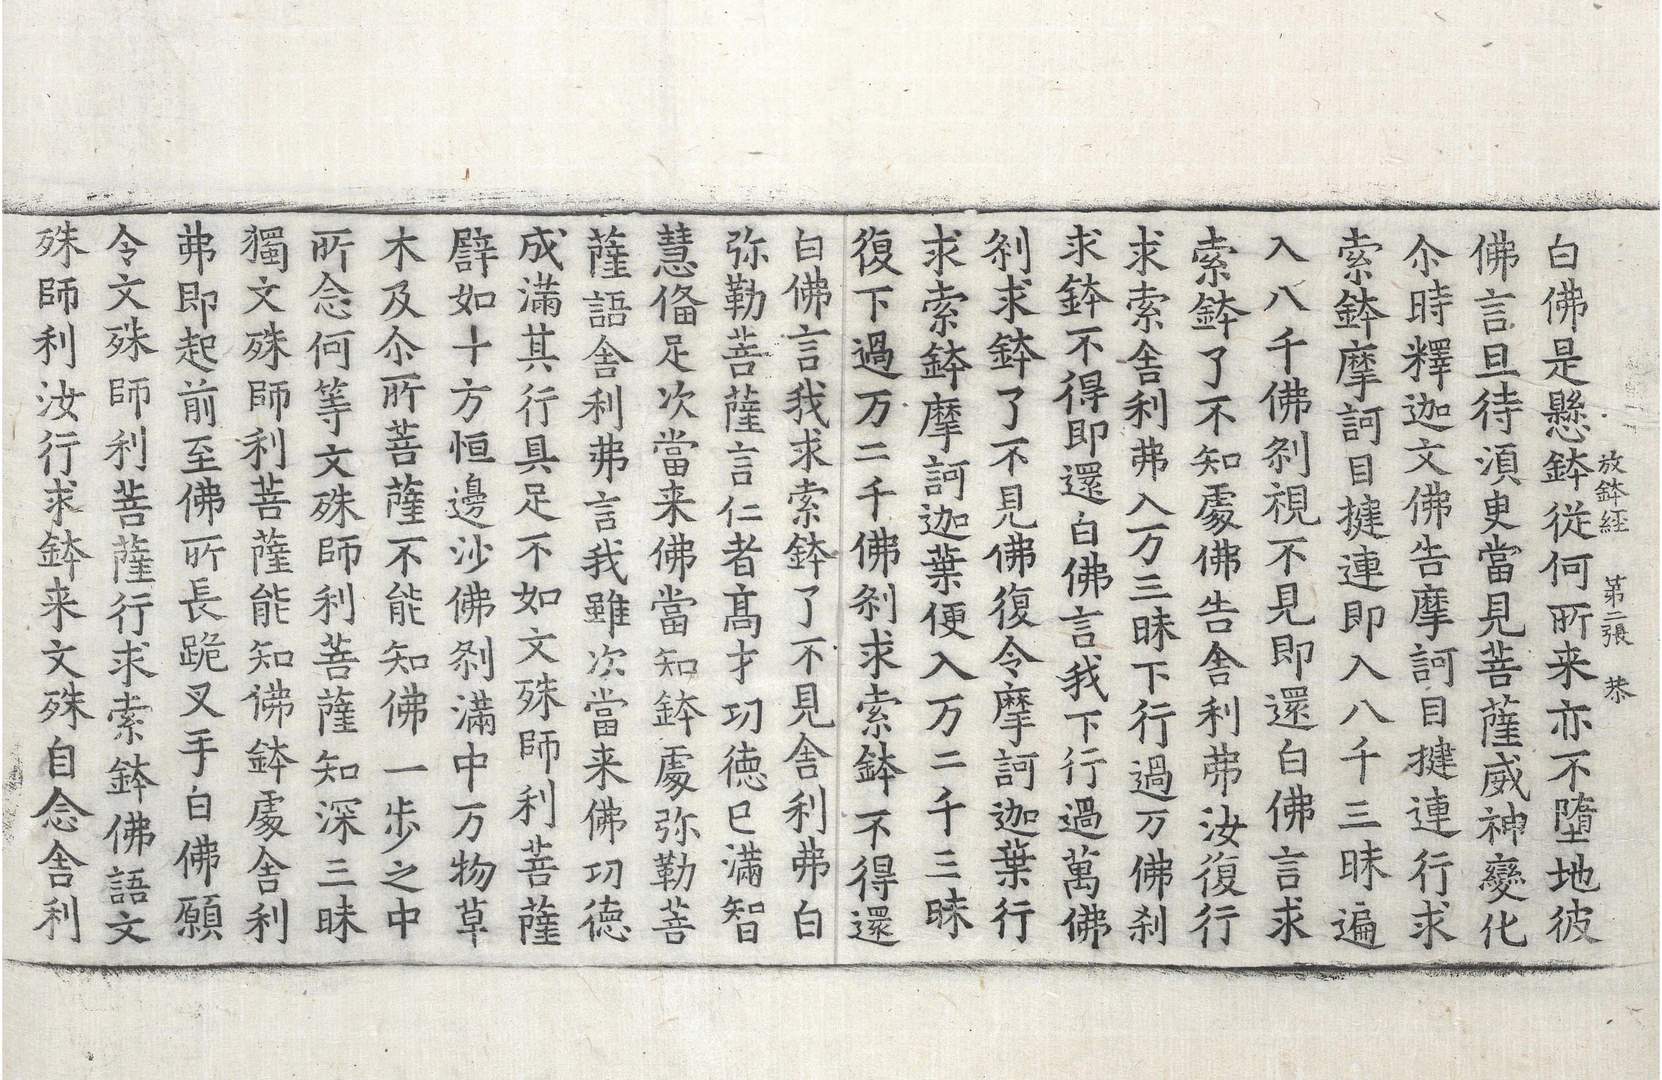 放鉢經　第二張　恭
白佛是懸鉢從何所来亦不墮地彼
佛言且待湏㪅當見菩薩威神變化
尒時釋迦文佛告摩訶目揵連行求
索鉢摩訶目揵連即入八千三昧遍
入八千佛刹視不見即還白佛言求
索鉢了不知處佛告舎利弗汝復行
求索舎利弗入万三昧下行過万佛刹
求鉢不得即還白佛言我下行過萬佛
刹求鉢了不見佛復令摩訶迦葉行
求索鉢摩訶迦葉便入万二千三昧
復下過万二千佛刹求索鉢不得還
白佛言我求索鉢了不見舎利弗白
弥勒菩薩言仁者髙才㓛徳已滿智
慧俻足次當来佛當知鉢處弥勒菩
薩語舎利弗言我雖次當来佛㓛徳
成滿其行具足不如文殊師利菩薩
譬如十方恒邊沙佛刹滿中万物草
木及尒所菩薩不能知佛一歩之中
所念何等文殊師利菩薩知深三昧
獨文殊師利菩薩能知佛鉢處舎利
弗即起前至佛所長跪叉手白佛願
令文殊師利菩薩行求索鉢佛語文
殊師利汝行求鉢来文殊自念舎利